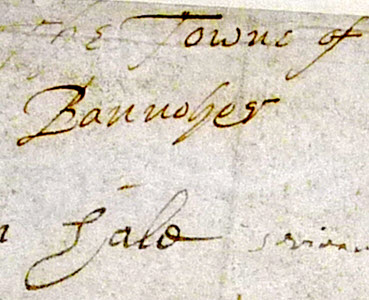 the Towne of
Bannoher
Sale